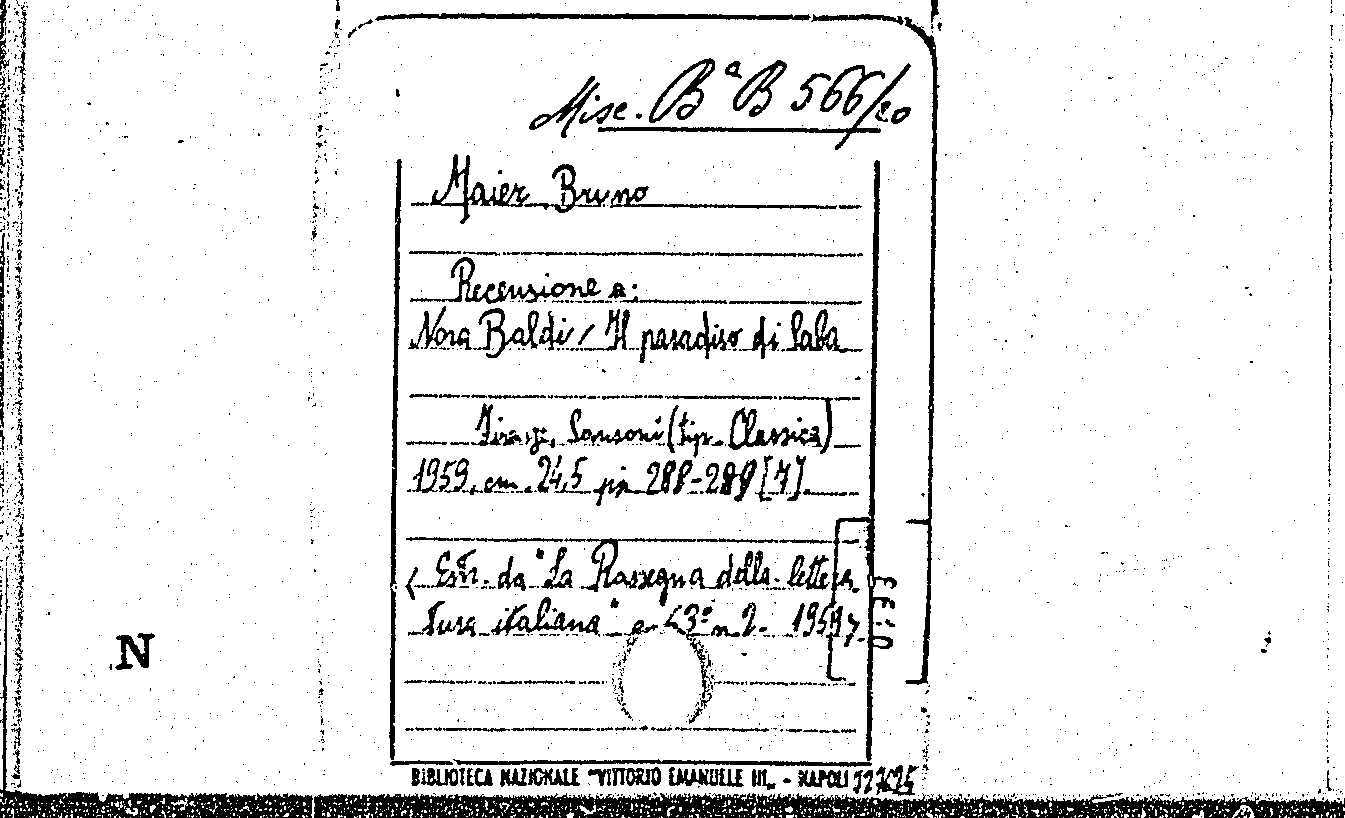 Misc. Bª B 566/20
Maier Bruno
Recensione a:
Nora Baldi / Il paradiso di Saba
Firenze, Sansoni (tip. Classica)
1959, cm. 24,5 pp. 288-289 [7].
< Estr. da "La Rassegna della lettera
tura italiana" a 63º n. 2. 1959 >.
N
BIBLIOTECA NAZIONALE "VITTORIO EMANUELE III" - NAPOLI